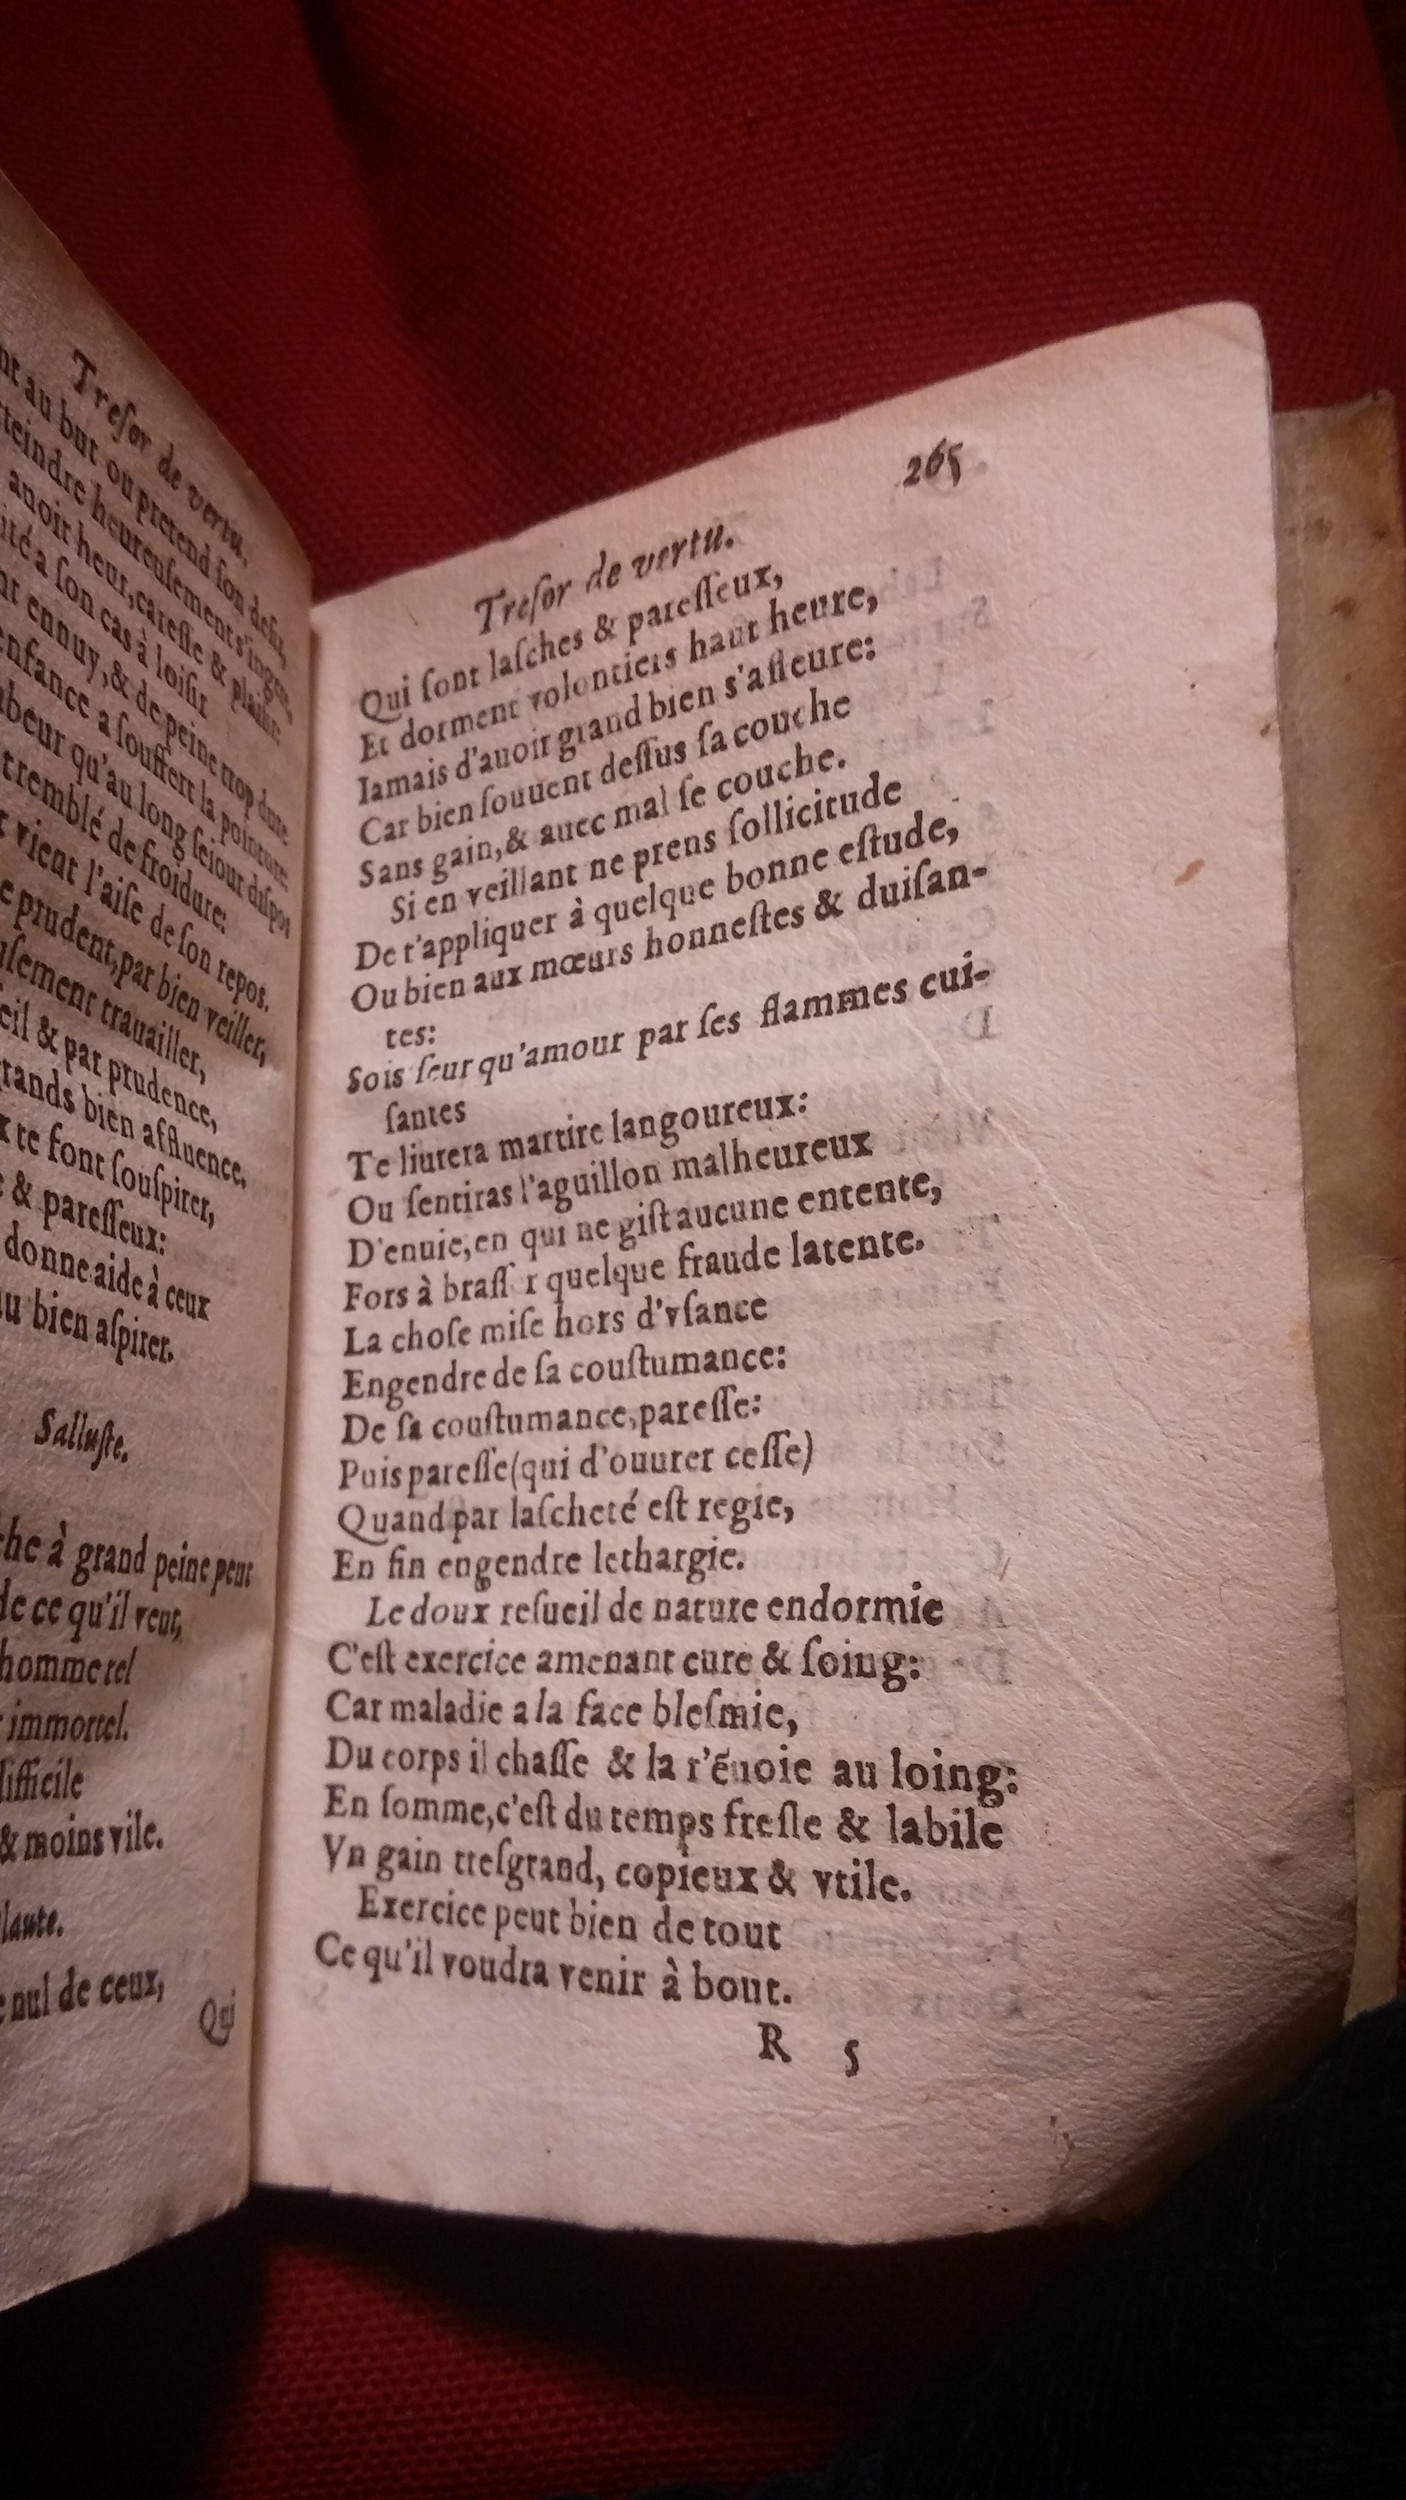 Treſor de vertu.
nt au but ou pretend ſon deſir,
tteindre heureuſement s'ingere,
auoir heur, careſſe & plaiſir.
ité a ſon cas à loiſir
nt ennuy, & de peine trop dure
enfance a ſouffert la pointure:
abeur qu'au long ſeiour diſpos
tremblé de froidure:
vient l'aiſe de ſon repos.
e prudent, par bien veiller,
uſement trauailler,
eil & par prudence,
rands bien affluence.
x te font ſouſpirer,
& pareſſeux:
donne aide à ceux
au bien aſpirer.
Salluſte.
che à grand peine peut
de ce qu'il veut,
homme tel
immortel.
difficile
& moins vile.
laute.
e nul de ceux,
Qui
265
Treſor de vertu.
Qui ſont laſches & pareſſeux,
Et dorment volontiers haut heure,
Iamais d'auoir grand bien s'aſſeure:
Car bien ſouuent deſſus ſa couche
Sans gain, & auec mal ſe couche.
Si en veillant ne prens ſollicitude
De t'appliquer à quelque bonne eſtude,
Ou bien aux mœurs honneſtes & duiſan-
tes:
Sois ſeur qu'amour par ſes flammes cui-
ſantes
Te liurera martire langoureux:
Ou ſentiras l'aguillon malheureux
D'enuie, en qui ne giſt aucune entente,
Fors à braſſ r quelque fraude latente.
La choſe miſe hors d'vſance
Engendre de ſa couſtumance:
De ſa couſtumance, pareſſe:
Puis pareſſe (qui d'ouurer ceſſe)
Quand par laſcheté eſt regie,
En fin engendre lethargie.
Le doux reſueil de nature endormie
C'eſt exercice amenant cure & ſoing:
Car maladie a la face bleſmie,
Du corps il chaſſe & la r'ẽuoie au loing:
En ſomme, c'eſt du temps freſle & labile
Vn gain treſgrand, copieux & vtile.
Exercice peut bien de tout
Ce qu'il voudra venir à bout.
R 5